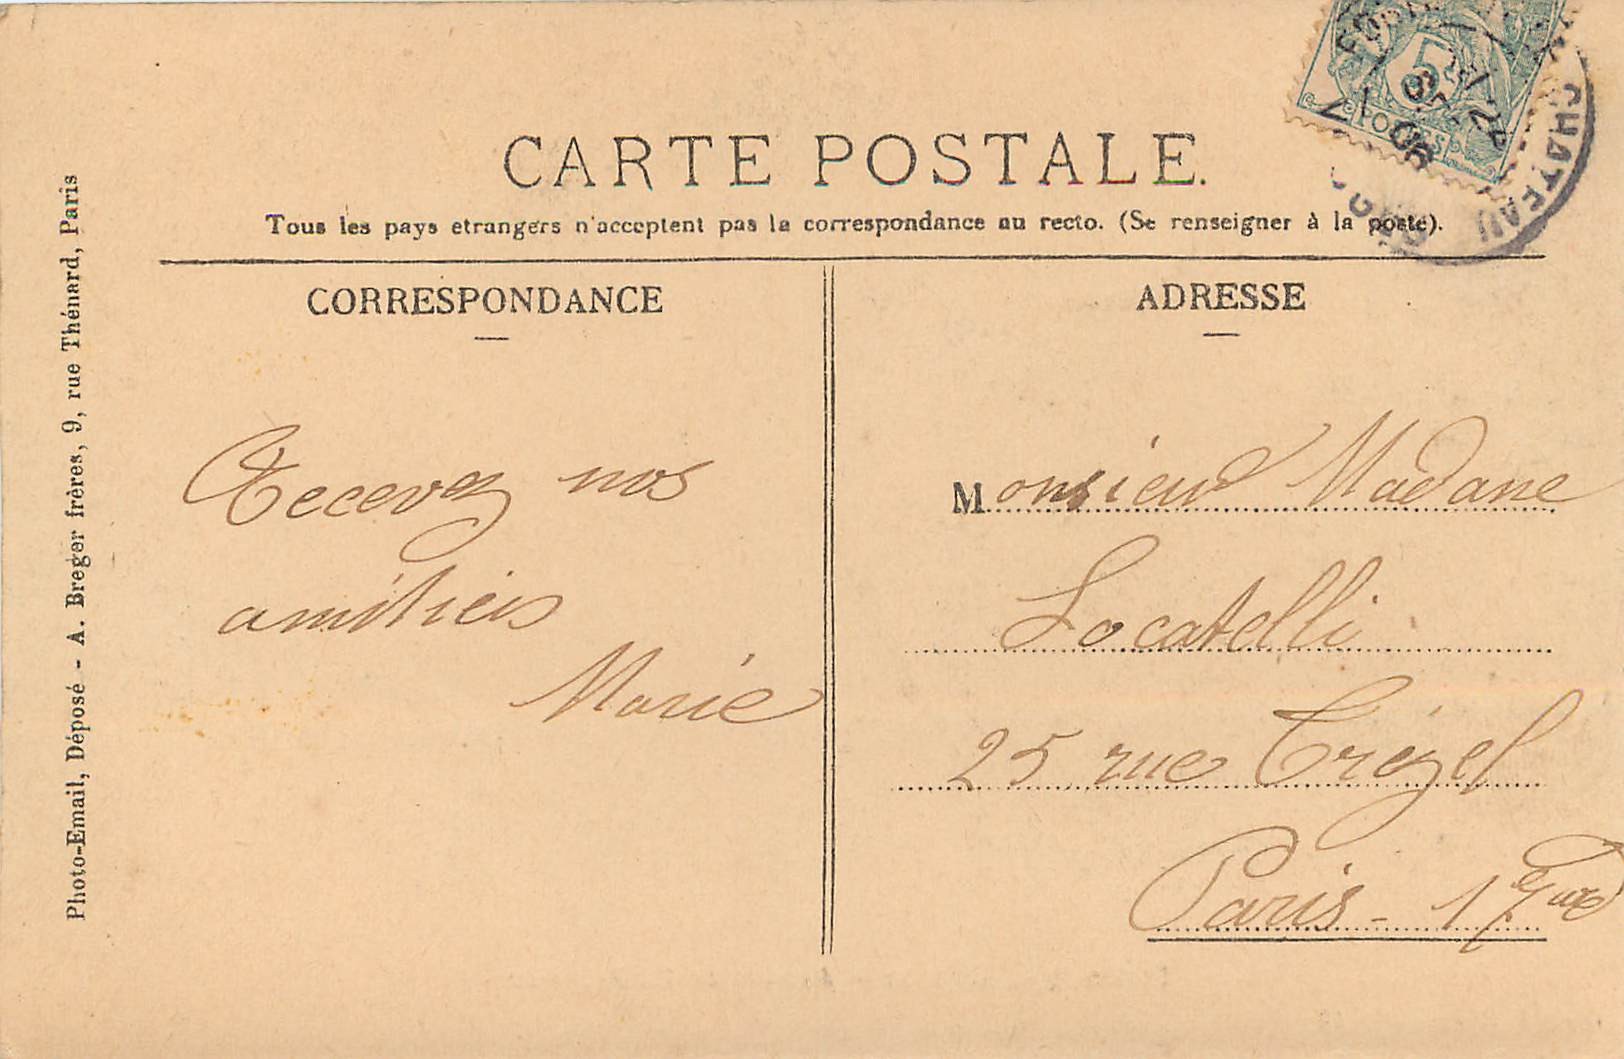 CARTE POSTALE.
Tous les pays etrangers n'acceptent pas la correspondance au recto. (Se renseigner à la poste).
CORRESPONDANCE
Recevez nos
amitiés
Marie
ADRESSE
Monsieur Madane
Locatelli
25 rue Trézel
Paris - 17eme
Photo-Email, Déposé - A. Breger frères, 9, rue Thénard, Paris
5c
CHATEAU
06